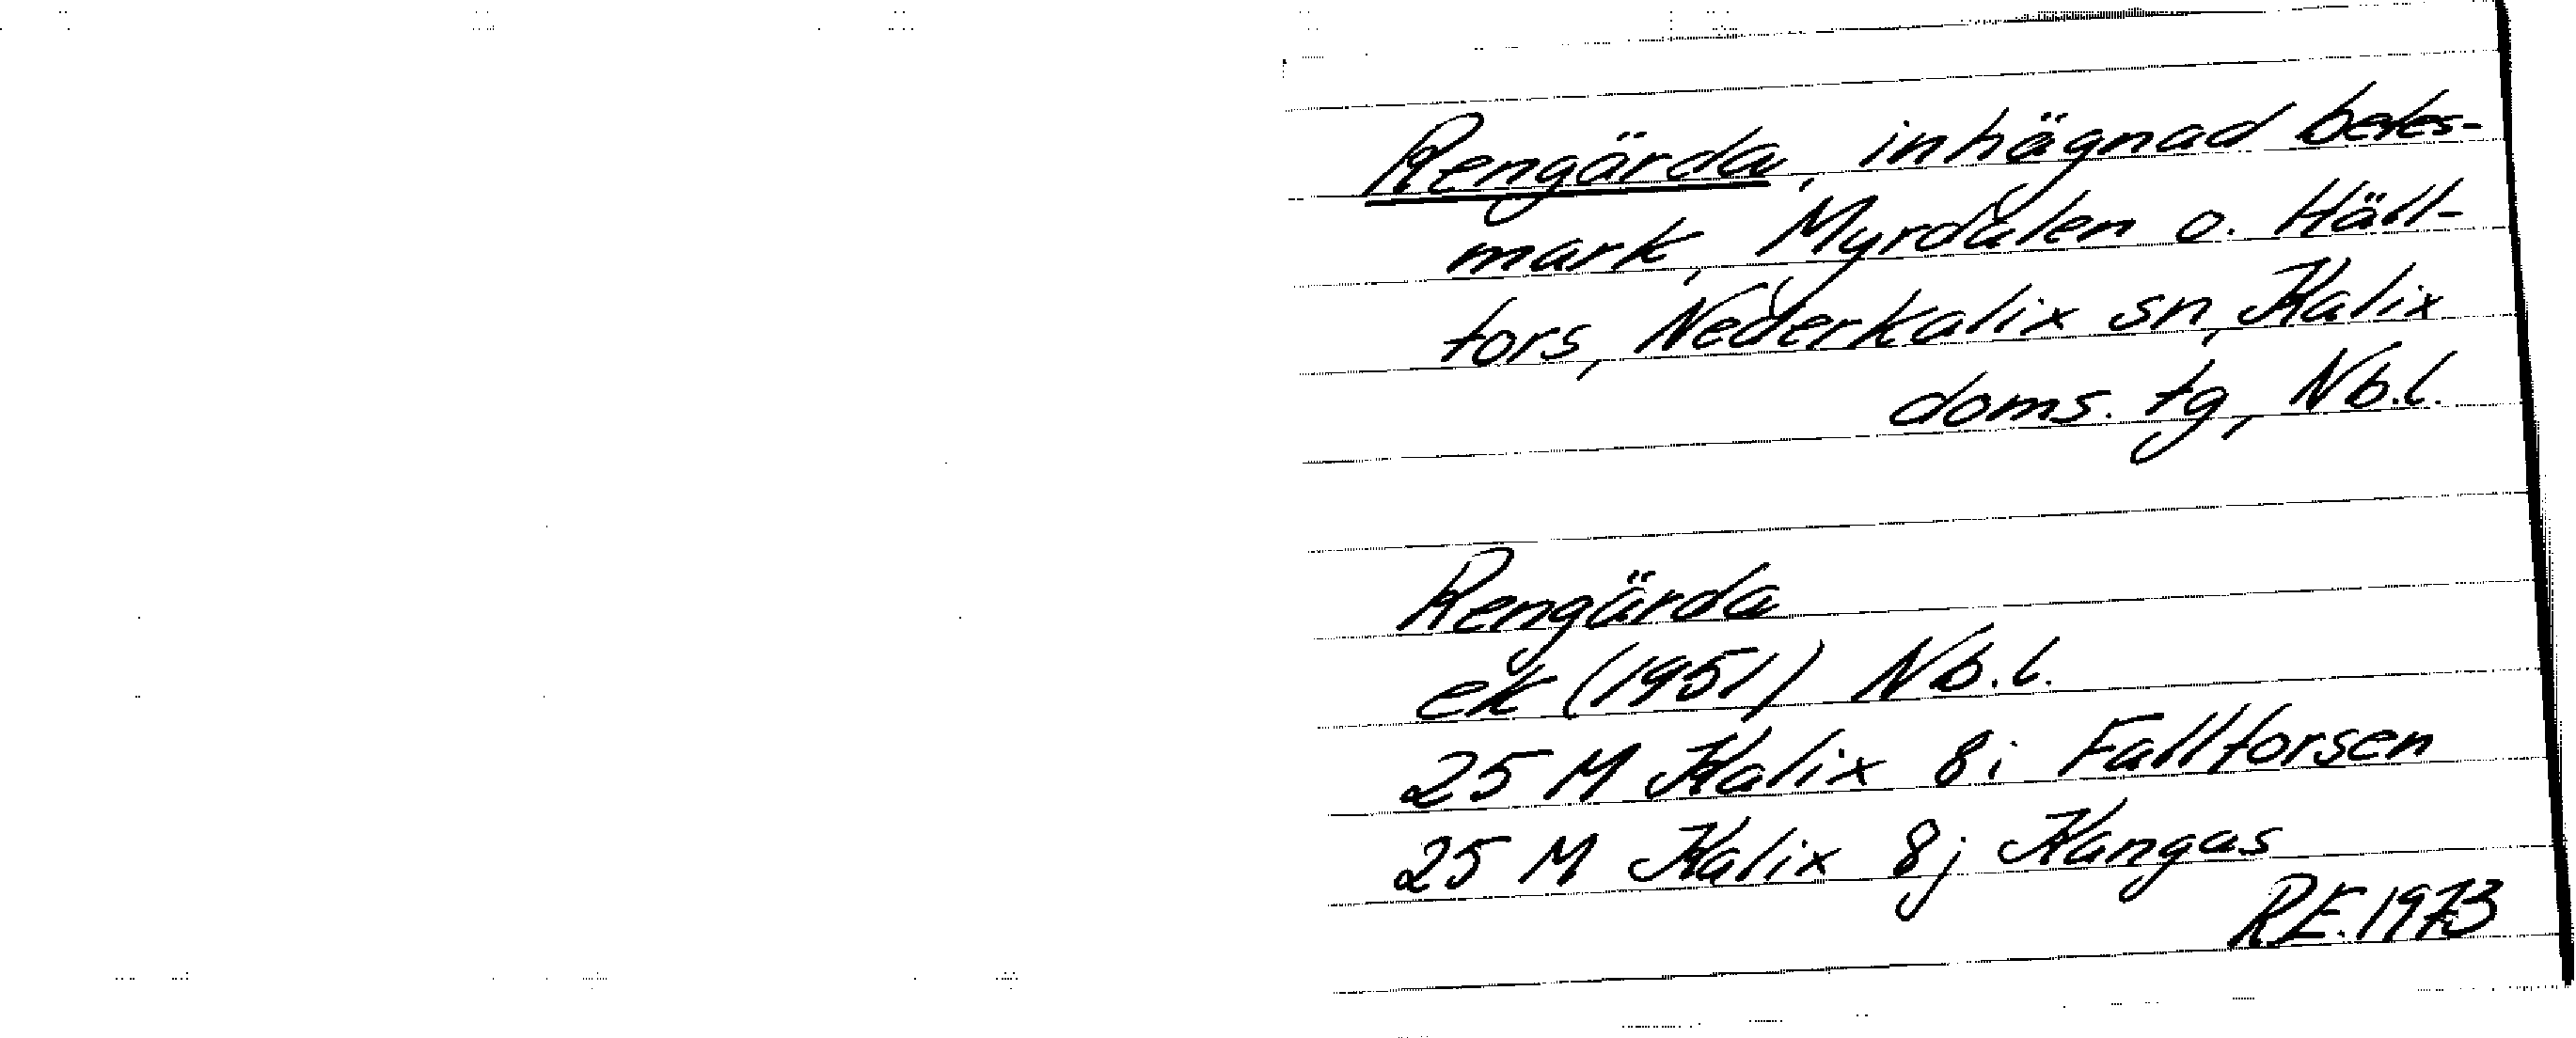 Rengärda, inhägnad betes-
mark, Myrdalen o. Häll-
fors, Nederkalix sn, Kalix
doms. tg, Nb.l.
Rengärda
ek (1951) Nb.l.
25 M Kalix 8i Fallforsen
25 M Kalix 8j Kangas
R.E. 1973